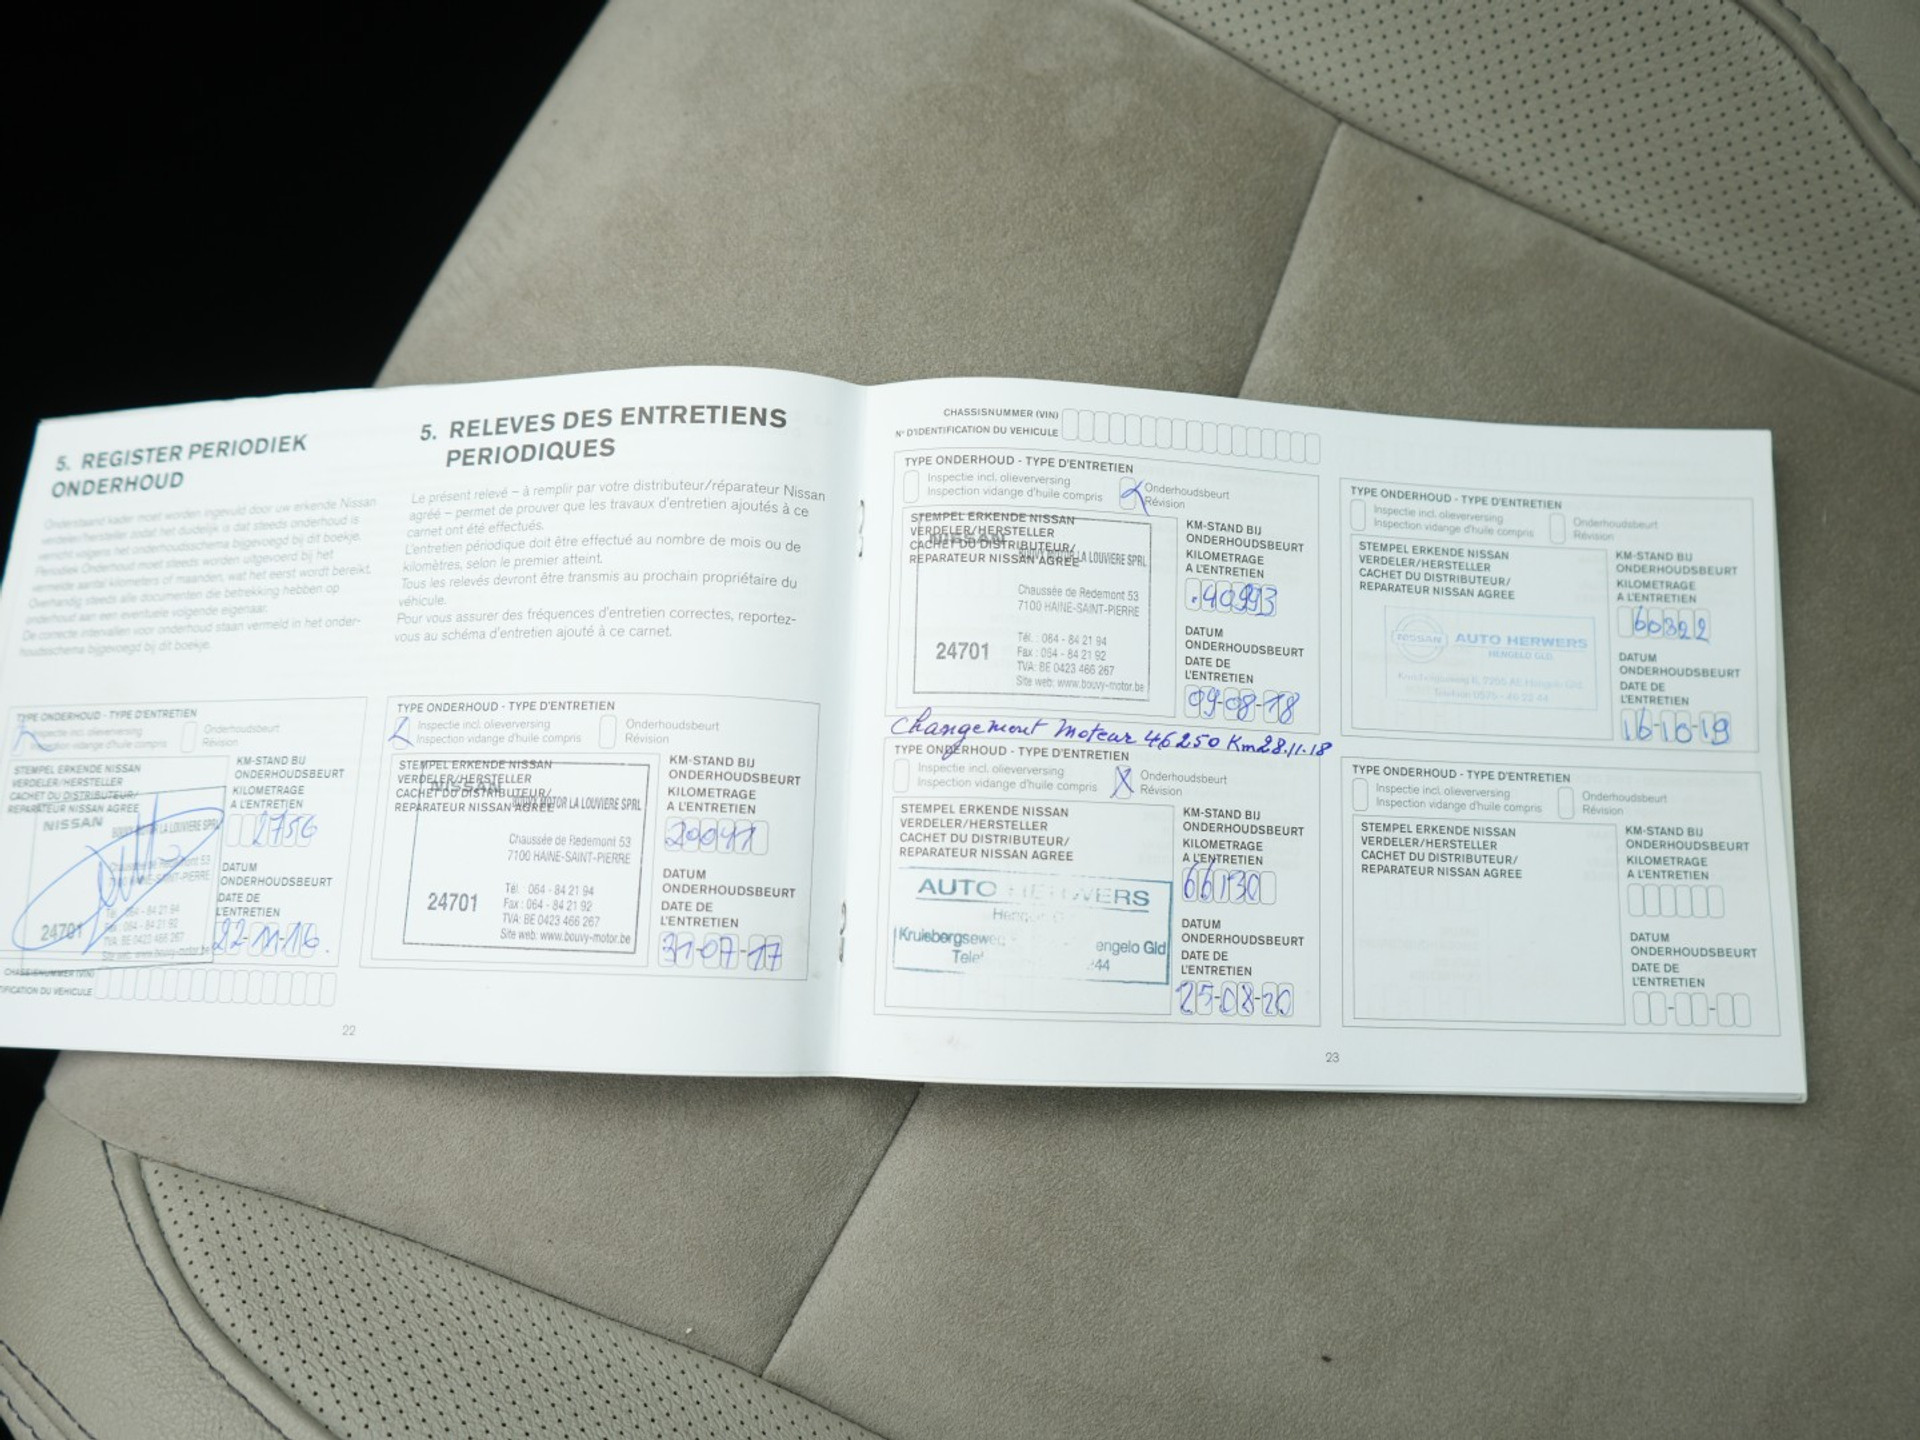 5. REGISTER PERIODIEK
ONDERHOUD
Onderstaand kader moet worden ingevuld door uw erkende Nissan
verdeler/hersteller zodat het duidelijk is dat steeds onderhoud is
verricht volgens het onderhoudsschema bijgevoegd bij dit boekje.
Periodiek Onderhoud moet steeds worden uitgevoerd bij het
vermelde aantal kilometers of maanden, wat het eerst wordt bereikt.
Overhandig steeds alle documenten die betrekking hebben op
onderhoud aan een eventuele volgende eigenaar.
De correcte intervallen voor onderhoud staan vermeld in het onder-
houdsschema bijgevoegd bij dit boekje.
5. RELEVES DES ENTRETIENS
PERIODIQUES
Le présent relevé – à remplir par votre distributeur/réparateur Nissan
agréé – permet de prouver que les travaux d'entretien ajoutés à ce
carnet ont été effectués.
L'entretien périodique doit être effectué au nombre de mois ou de
kilomètres, selon le premier atteint.
Tous les relevés devront être transmis au prochain propriétaire du
véhicule.
Pour vous assurer des fréquences d'entretien correctes, reportez-
vous au schéma d'entretien ajouté à ce carnet.
TYPE ONDERHOUD - TYPE D'ENTRETIEN
Inspectie incl. olieverversing
Inspection vidange d'huile compris
Onderhoudsbeurt
Révision
STEMPEL ERKENDE NISSAN
VERDELER/HERSTELLER
CACHET DU DISTRIBUTEUR/
REPARATEUR NISSAN AGREE
NISSAN
BOUVY MOTOR LA LOUVIERE SPRL
Chaussée de Redemont 53
7100 HAINE-SAINT-PIERRE
24701
Tél. : 064 - 84 21 94
Fax : 064 - 84 21 92
TVA: BE 0423 466 267
Site web: www.bouvy-motor.be
KM-STAND BIJ
ONDERHOUDSBEURT
KILOMETRAGE
A L'ENTRETIEN
2756
DATUM
ONDERHOUDSBEURT
DATE DE
L'ENTRETIEN
22-11-16.
CHASSISNUMMER (VIN)
TIFICATION DU VEHICULE
TYPE ONDERHOUD - TYPE D'ENTRETIEN
Inspectie incl. olieverversing
Inspection vidange d'huile compris
Onderhoudsbeurt
Révision
STEMPEL ERKENDE NISSAN
VERDELER/HERSTELLER
CACHET DU DISTRIBUTEUR/
REPARATEUR NISSAN AGREE
NISSAN
BOUVY MOTOR LA LOUVIERE SPRL
Chaussée de Redemont 53
7100 HAINE-SAINT-PIERRE
24701
Tél. : 064 - 84 21 94
Fax : 064 - 84 21 92
TVA: BE 0423 466 267
Site web: www.bouvy-motor.be
KM-STAND BIJ
ONDERHOUDSBEURT
KILOMETRAGE
A L'ENTRETIEN
20041
DATUM
ONDERHOUDSBEURT
DATE DE
L'ENTRETIEN
31-07-17
22
CHASSISNUMMER (VIN)
N° D'IDENTIFICATION DU VEHICULE
TYPE ONDERHOUD - TYPE D'ENTRETIEN
Inspectie incl. olieverversing
Inspection vidange d'huile compris
Onderhoudsbeurt
Révision
STEMPEL ERKENDE NISSAN
VERDELER/HERSTELLER
CACHET DU DISTRIBUTEUR/
REPARATEUR NISSAN AGREE
NISSAN
BOUVY MOTOR LA LOUVIERE SPRL
Chaussée de Redemont 53
7100 HAINE-SAINT-PIERRE
24701
Tél. : 064 - 84 21 94
Fax : 064 - 84 21 92
TVA: BE 0423 466 267
Site web: www.bouvy-motor.be
KM-STAND BIJ
ONDERHOUDSBEURT
KILOMETRAGE
A L'ENTRETIEN
40993
DATUM
ONDERHOUDSBEURT
DATE DE
L'ENTRETIEN
09-08-18
Changement moteur 46250 Km 28.11.18
TYPE ONDERHOUD - TYPE D'ENTRETIEN
Inspectie incl. olieverversing
Inspection vidange d'huile compris
Onderhoudsbeurt
Révision
STEMPEL ERKENDE NISSAN
VERDELER/HERSTELLER
CACHET DU DISTRIBUTEUR/
REPARATEUR NISSAN AGREE
AUTO HERWERS
Kruisbergseweg engelo Gld
44
KM-STAND BIJ
ONDERHOUDSBEURT
KILOMETRAGE
A L'ENTRETIEN
66130
DATUM
ONDERHOUDSBEURT
DATE DE
L'ENTRETIEN
25-08-20
TYPE ONDERHOUD - TYPE D'ENTRETIEN
Inspectie incl. olieverversing
Inspection vidange d'huile compris
Onderhoudsbeurt
Révision
STEMPEL ERKENDE NISSAN
VERDELER/HERSTELLER
CACHET DU DISTRIBUTEUR/
REPARATEUR NISSAN AGREE
NISSAN AUTO HERWERS
HENGELO GLD.
KM-STAND BIJ
ONDERHOUDSBEURT
KILOMETRAGE
A L'ENTRETIEN
60322
DATUM
ONDERHOUDSBEURT
DATE DE
L'ENTRETIEN
16-10-19
TYPE ONDERHOUD - TYPE D'ENTRETIEN
Inspectie incl. olieverversing
Inspection vidange d'huile compris
Onderhoudsbeurt
Révision
STEMPEL ERKENDE NISSAN
VERDELER/HERSTELLER
CACHET DU DISTRIBUTEUR/
REPARATEUR NISSAN AGREE
KM-STAND BIJ
ONDERHOUDSBEURT
KILOMETRAGE
A L'ENTRETIEN
DATUM
ONDERHOUDSBEURT
DATE DE
L'ENTRETIEN
23